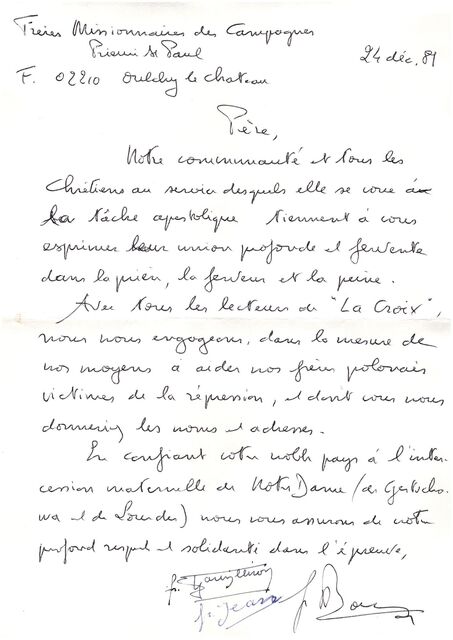 Frères Missionnaires des Campagnes
Prieuré St Paul
24 déc. 81
F. 02210 Oulchy le chateau
Père,
Notre communauté et tous les
Chrétiens au service desquels elle se voue
la tâche apostolique tiennent à vous
exprimer leur union profonde et fervente
dans la prière, la ferveur et la peine.
Avec tous les lecteurs de "La Croix",
nous nous engageons, dans la mesure de
nos moyens à aider nos frères polonais
victimes de la répression, et dont vous nous
donneriez les noms et adresses.
En confiant votre noble pays à l'inter-
cession maternelle de Notre Dame (de
et de Lourdes) nous vous assurons de notre
profond respect et solidarité dans l'épreuve,
f. Jean